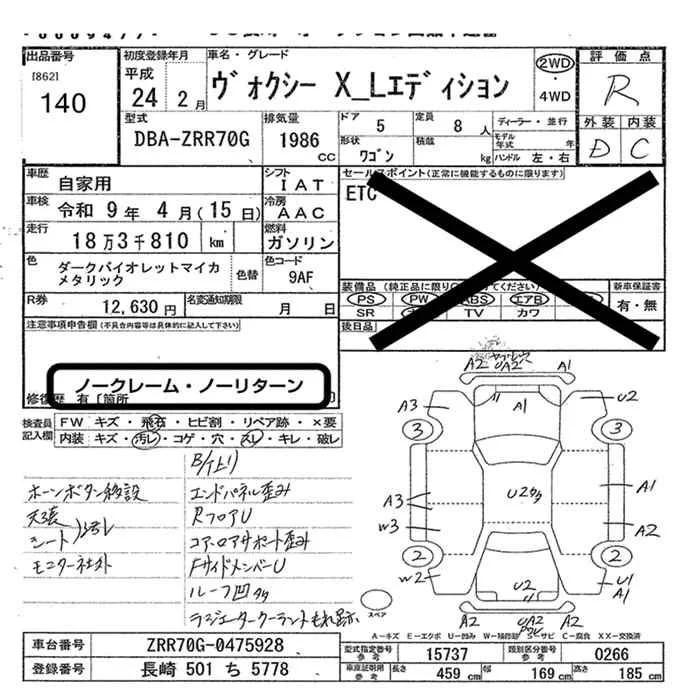 出品番号
[862]
140
初度登録年月
平成
24 2月
車名・グレード
ヴォクシー X_Lエディション
2WD
4WD
評価点
R
外装 内装
D C
型式
DBA-ZRR70G
排気量
1986 CC
ドア 5
定員 8 人
形状 ワゴン
積載 kg
ディーラー・並行
モデル年式 年式
ハンドル 左・右
車歴 自家用
シフト IAT
車検 令和 9年 4月(15日)
冷房 AAC
走行 18万3千810 km
燃料 ガソリン
色 ダークバイオレットマイカメタリック
色替
色コード 9AF
R券 12,630円
名変通知期限 月 日
セールスポイント(正常に機能するものに限ります)
ETC
装備品
PS PW ABS エアB
SR TV カワ
新車保証書
有・無
後日品
注意事項申告欄(不具合内容等は具体的に記入して下さい)
ノークレーム・ノーリターン
修復歴 有〔箇所
検査員記入欄
FW キズ・飛石・ヒビ割・リペア跡・×要
内装 キズ・汚レ・コゲ・穴・スレ・キレ・破レ
ホーンボタン移設
天張
シート 汚レ
モニター社外
エンドパネル歪み
RフロアU
コアロアサポート歪み
FサイドメンバーU
ルーフ凹
ラジエータークーラントもれ跡
A2 UA2 A1
A3 A1 U2
3 3
A3 U2 A1
W3 A2
2 2
W2 U2 U1
A1
A2 UA2 A2
スペア
A-キズ E-エクボ U-凹み W-補修跡 S-サビ C-腐食 XX-交換済
車台番号 ZRR70G-0475928
登録番号 長崎 501 ち 5778
型式指定番号 参考 15737
類別区分番号 参考 0266
車庫証明用 参考 長さ 459 cm 幅 169 cm 高さ 185 cm